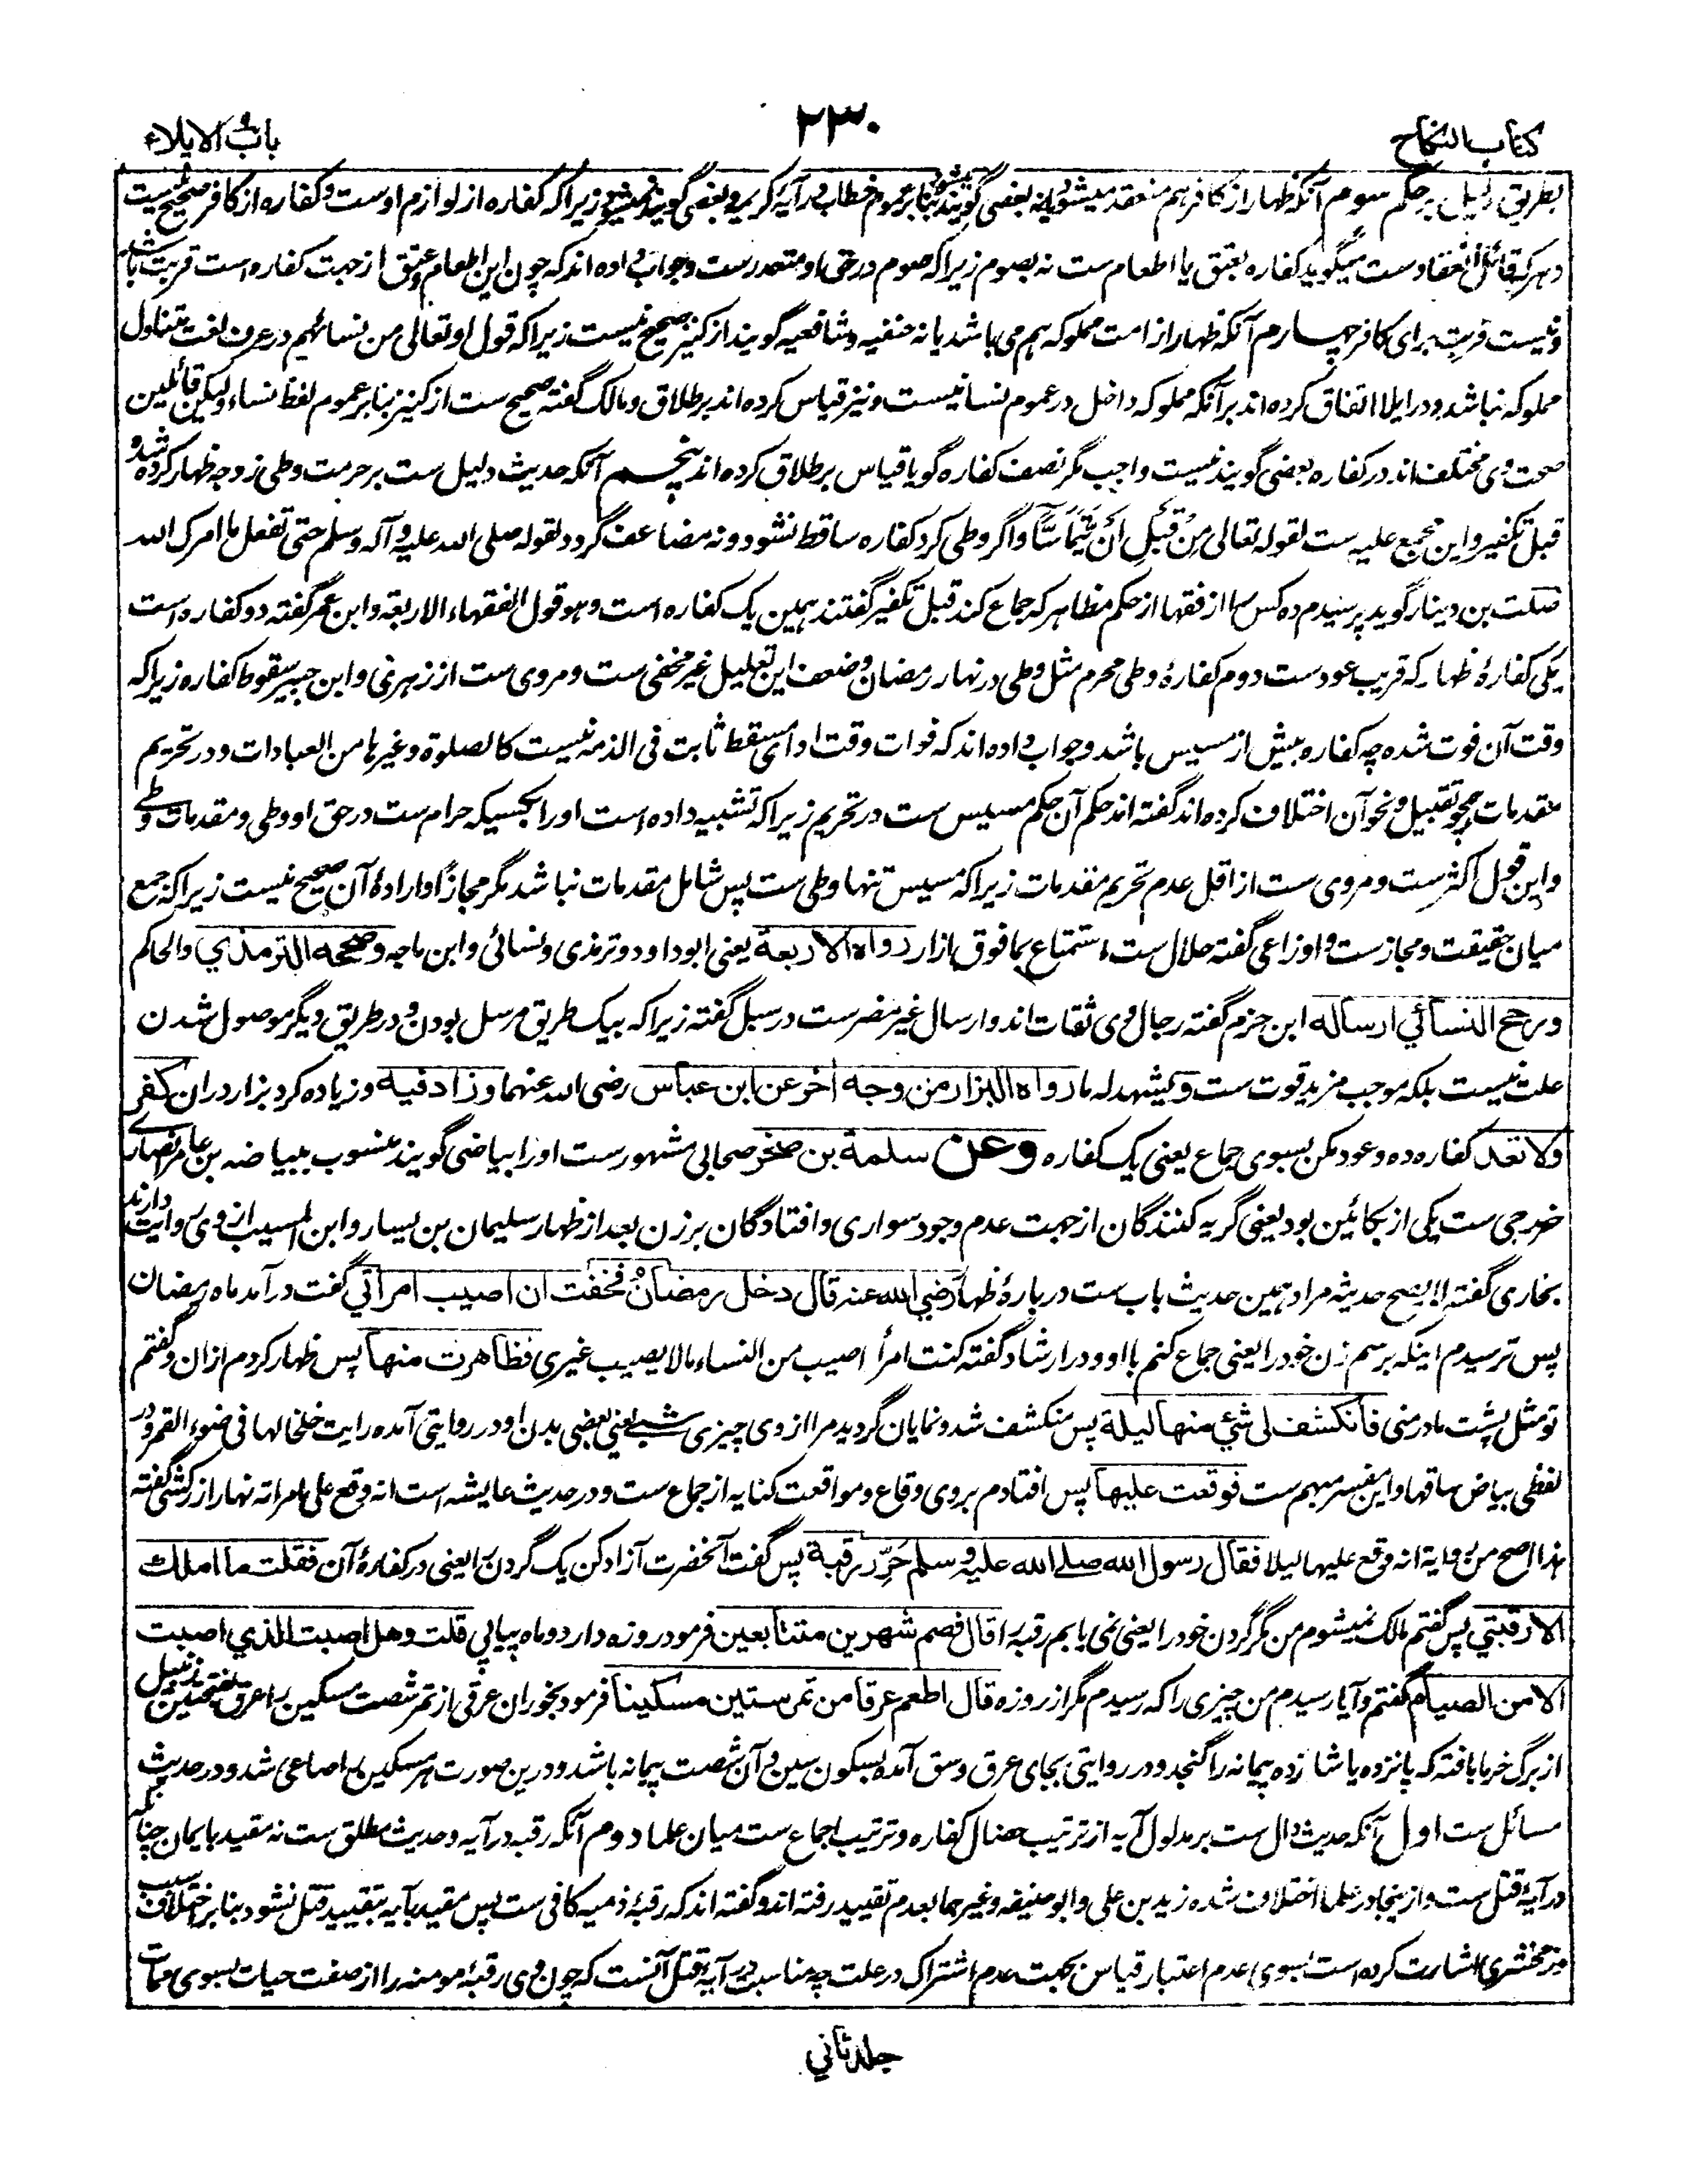 کتاب النکاح
۲۳۰
باب الایلاء
بطریق دلیل بر حکم سوم آنکه ظهار از کافر هم منعقد میشود یا نه بعضی گویند میشود بنا بر عموم خطاب در آیۀ کریمه و بعضی گویند نمیشود زیراکه کفاره از لوازم اوست و کفاره از کافر صحیح نیست
و هرکه قائل انعقادست میگوید کفاره بعتق یا اطعام ست نه بصوم زیراکه صوم در حق او متعذرست و جواب داده اند که چون این اطعام و عتق از جهت کفاره است قربت باشد
و نیست قربت برای کافر چهارم آنکه ظهار از امت مملوکه هم می باشد یا نه حنفیه و شافعیه گویند از کنیز صحیح نیست زیراکه قول او تعالی من نسائهم در عرف لغت متناول
مملوکه نباشد و در ایلا اتفاق کرده اند برآنکه مملوکه داخل در عموم نسا نیست و نیز قیاس کرده اند بر طلاق و مالک گفته صحیح ست از کنیز بنا بر عموم لفظ نساء ولیکن قائلین
صحت وی مختلف اند در کفاره بعضی گویند نیست واجب مگر نصف کفاره گویا قیاس بر طلاق کرده اند پنجم آنکه حدیث دلیل ست بر حرمت وطی زوجه ظهار کرده شده
قبل تکفیر و این مجمع علیه ست لقوله تعالی مِنْ قَبْلِ اَنْ یَّتَمَاسَّا و اگر وطی کرد کفاره ساقط نشود و نه مضاعف گردد لقوله صلی الله علیه و آله وسلم حتی تفعل ما امرک الله
صلت بن دینار گوید پرسیدم ده کس را از فقها از حکم مظاهر که جماع کند قبل تکفیر گفتند همین یک کفاره است و هو قول الفقهاء الاربعة و ابن عمر گفته دو کفاره است
یکی کفارۀ ظهار که قریب عودست دوم کفارۀ وطی محرم مثل وطی در نهار رمضان و ضعف این تعلیل غیر مخفی ست و مروی ست از زهری و ابن جبیر سقوط کفاره زیراکه
وقت آن فوت شده چه کفاره پیش از مسیس باشد و جواب داده اند که فوات وقت ادا مسقط ثابت فی الذمه نیست کالصلوة و غیرها من العبادات و در تحریم
مقدمات همچو تقبیل و نحو آن اختلاف کرده اند گفته اند حکم آن حکم مسیس ست در تحریم زیراکه تشبیه داده است او را بکسیکه حرام ست در حق او وطی و مقدمات وطی
و این قول اکثرست و مروی ست از اقل عدم تحریم مقدمات زیراکه مسیس تنها وطی ست پس شامل مقدمات نباشد مگر مجازًا و ارادۀ آن صحیح نیست زیراکه جمع
میان حقیقت و مجازست و اوزاعی گفته حلال ست استمتاع بما فوق ازار رواه الاربعة یعنی ابو داود و ترمذی و نسائی و ابن ماجه وصححه الترمذي والحاکم
ورجح النسائي ارساله ابن حزم گفته رجال وی ثقات اند و ارسال غیر مضرست در سبل گفته زیراکه بیک طریق مرسل بودن و در طریق دیگر موصول شدن
علت نیست بلکه موجب مزید قوت ست ویشهد له ما رواه البزار من وجه اخر عن ابن عباس رضی الله عنهما وزاد فیه و زیاده کرد بزار در ان کفر
ولا تعد کفاره ده و عود مکن بسوی جماع یعنی یک کفاره وعن سلمة بن صخر صحابی مشهورست او را بیاضی گویند منسوب ببیاضه بن عامر انصاری
خزرجی ست یکی از بکائین بود یعنی گریه کنندگان از جهت عدم وجود سواری و افتادگان برزن بعد از ظهار سلیمان بن یسار و ابن المسیب از وی روایت دارند
بخاری گفته لا یصح حدیثه مراد همین حدیث باب ست دربارۀ ظهار رضي الله عنه قال دخل رمضان فخفت ان اصیب امراتي گفت درآمد ماه رمضان
پس ترسیدم اینکه برسم زن خود را یعنی جماع کنم با او و در ارشاد گفته کنت امرأ اصیب من النساء مالا یصیب غیری فظاهرت منها پس ظهار کردم از ان و گفتم
تو مثل پشت مادر منی فانکشف لی شئي منها لیلة پس منکشف شد و نمایان گردید مرا از وی چیزی شبے یعنی بعضی بدن او در روایتی آمده رایت خلخالها فی ضوء القمر و در
لفظی بیاض ساقها و این مفسر مبهم ست فوقعت علیها پس افتادم بروی وقاع و مواقعت کنایه از جماع ست و در حدیث عایشه است انه وقع علی امراته نهارا زرکشی گفته
هذا اصح من روایة انه وقع علیها لیلا فقال رسول الله صلے الله علیه و سلم حَرِّر رقبة پس گفت آنحضرت آزاد کن یک گردن را یعنی در کفارۀ آن فقلت ما املک
الا رقبتي پس گفتم مالک نمیشوم من مگر گردن خود را یعنی نمی یابم رقبه را قال فصم شهرین متتابعین فرمود روزه دار دو ماه پیاپی قلت وهل اصبت الذي اصبت
الا من الصیام گفتم و آیا رسیدم من چیزی را که رسیدم مگر از روزه قال اطعم عرقا من تمر ستین مسکینا فرمود بخوران عرقی از تمر شصت مسکین را عرق بفتحتین زنبیل
از برگ خرما بافته که پانزده یا شانزده پیمانه را گنجد و در روایتی بجای عرق وسق آمده بسکون سین و آن شصت پیمانه باشد و درین صورت هر مسکین را صاعی شد و در حدیث
مسائل ست اول آنکه حدیث دال ست بر مدلول آیه از ترتیب خصال کفاره و ترتیب اجماع ست میان علما دوم آنکه رقبه در آیه و حدیث مطلق ست نه مقید بایمان چنانکه
در آیۀ قتل ست و ازینجا در علما اختلاف شده زید بن علی و ابو حنیفه و غیرهما بعدم تقیید رفته اند و گفته اند که رقبۀ ذمیه کافی ست پس مقید بآیه بتقیید قتل نشود بنا بر اختلاف سبب
و زمخشری اشارت کرده است بسوی عدم اعتبار قیاس بجهت عدم اشتراک در علت چه مناسبت در آیۀ قتل آنست که چون وی رقبۀ مومنه را از صفت حیات بسوی ممات
جلد ثاني